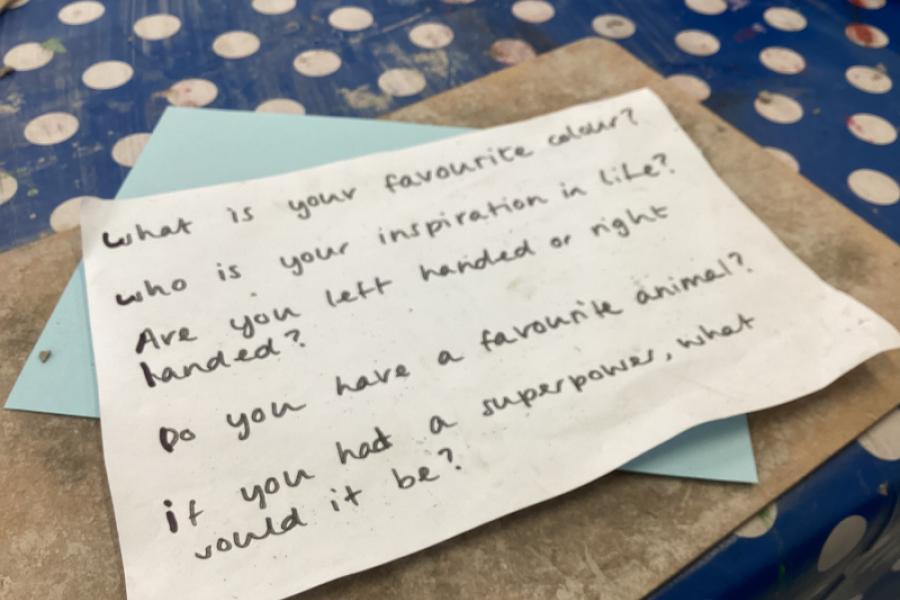 What is your favourite colour?
who is your inspiration in life?
Are you left handed or right
handed?
Do you have a favourite animal?
if you had a superpower, what
would it be?